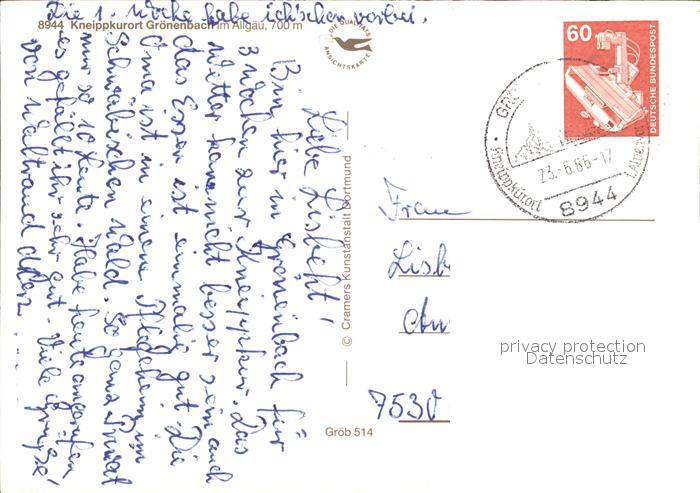 Die 1. Woche habe ich schon vorbei.
8944 Kneippkurort Grönenbach im Allgäu, 700 m
DIE QUALITÄTS
ANSICHTSKARTE
Liebe Lisbeht!
Bin hier in Grönenbach für
3 Wochen zur Kneippkur. Das
Wetter kann nicht besser sein auch
das Essen ist einmalig gut. Die
Oma ist in einem Pflegeheim im
Schwäbischen Wald. So ganz Privat
nur so 10 Leute. Habe heute angerufen
es gefällt ihr sehr gut - Viele Grüße
von Waltraud
© Cramers Kunstanstalt Dortmund
Gröb 514
60
DEUTSCHE BUNDESPOST
GRÖ
Kneippkurort
23.-6.86-17
8944
Frau
Lisb
An
7530
privacy protection
Datenschutz